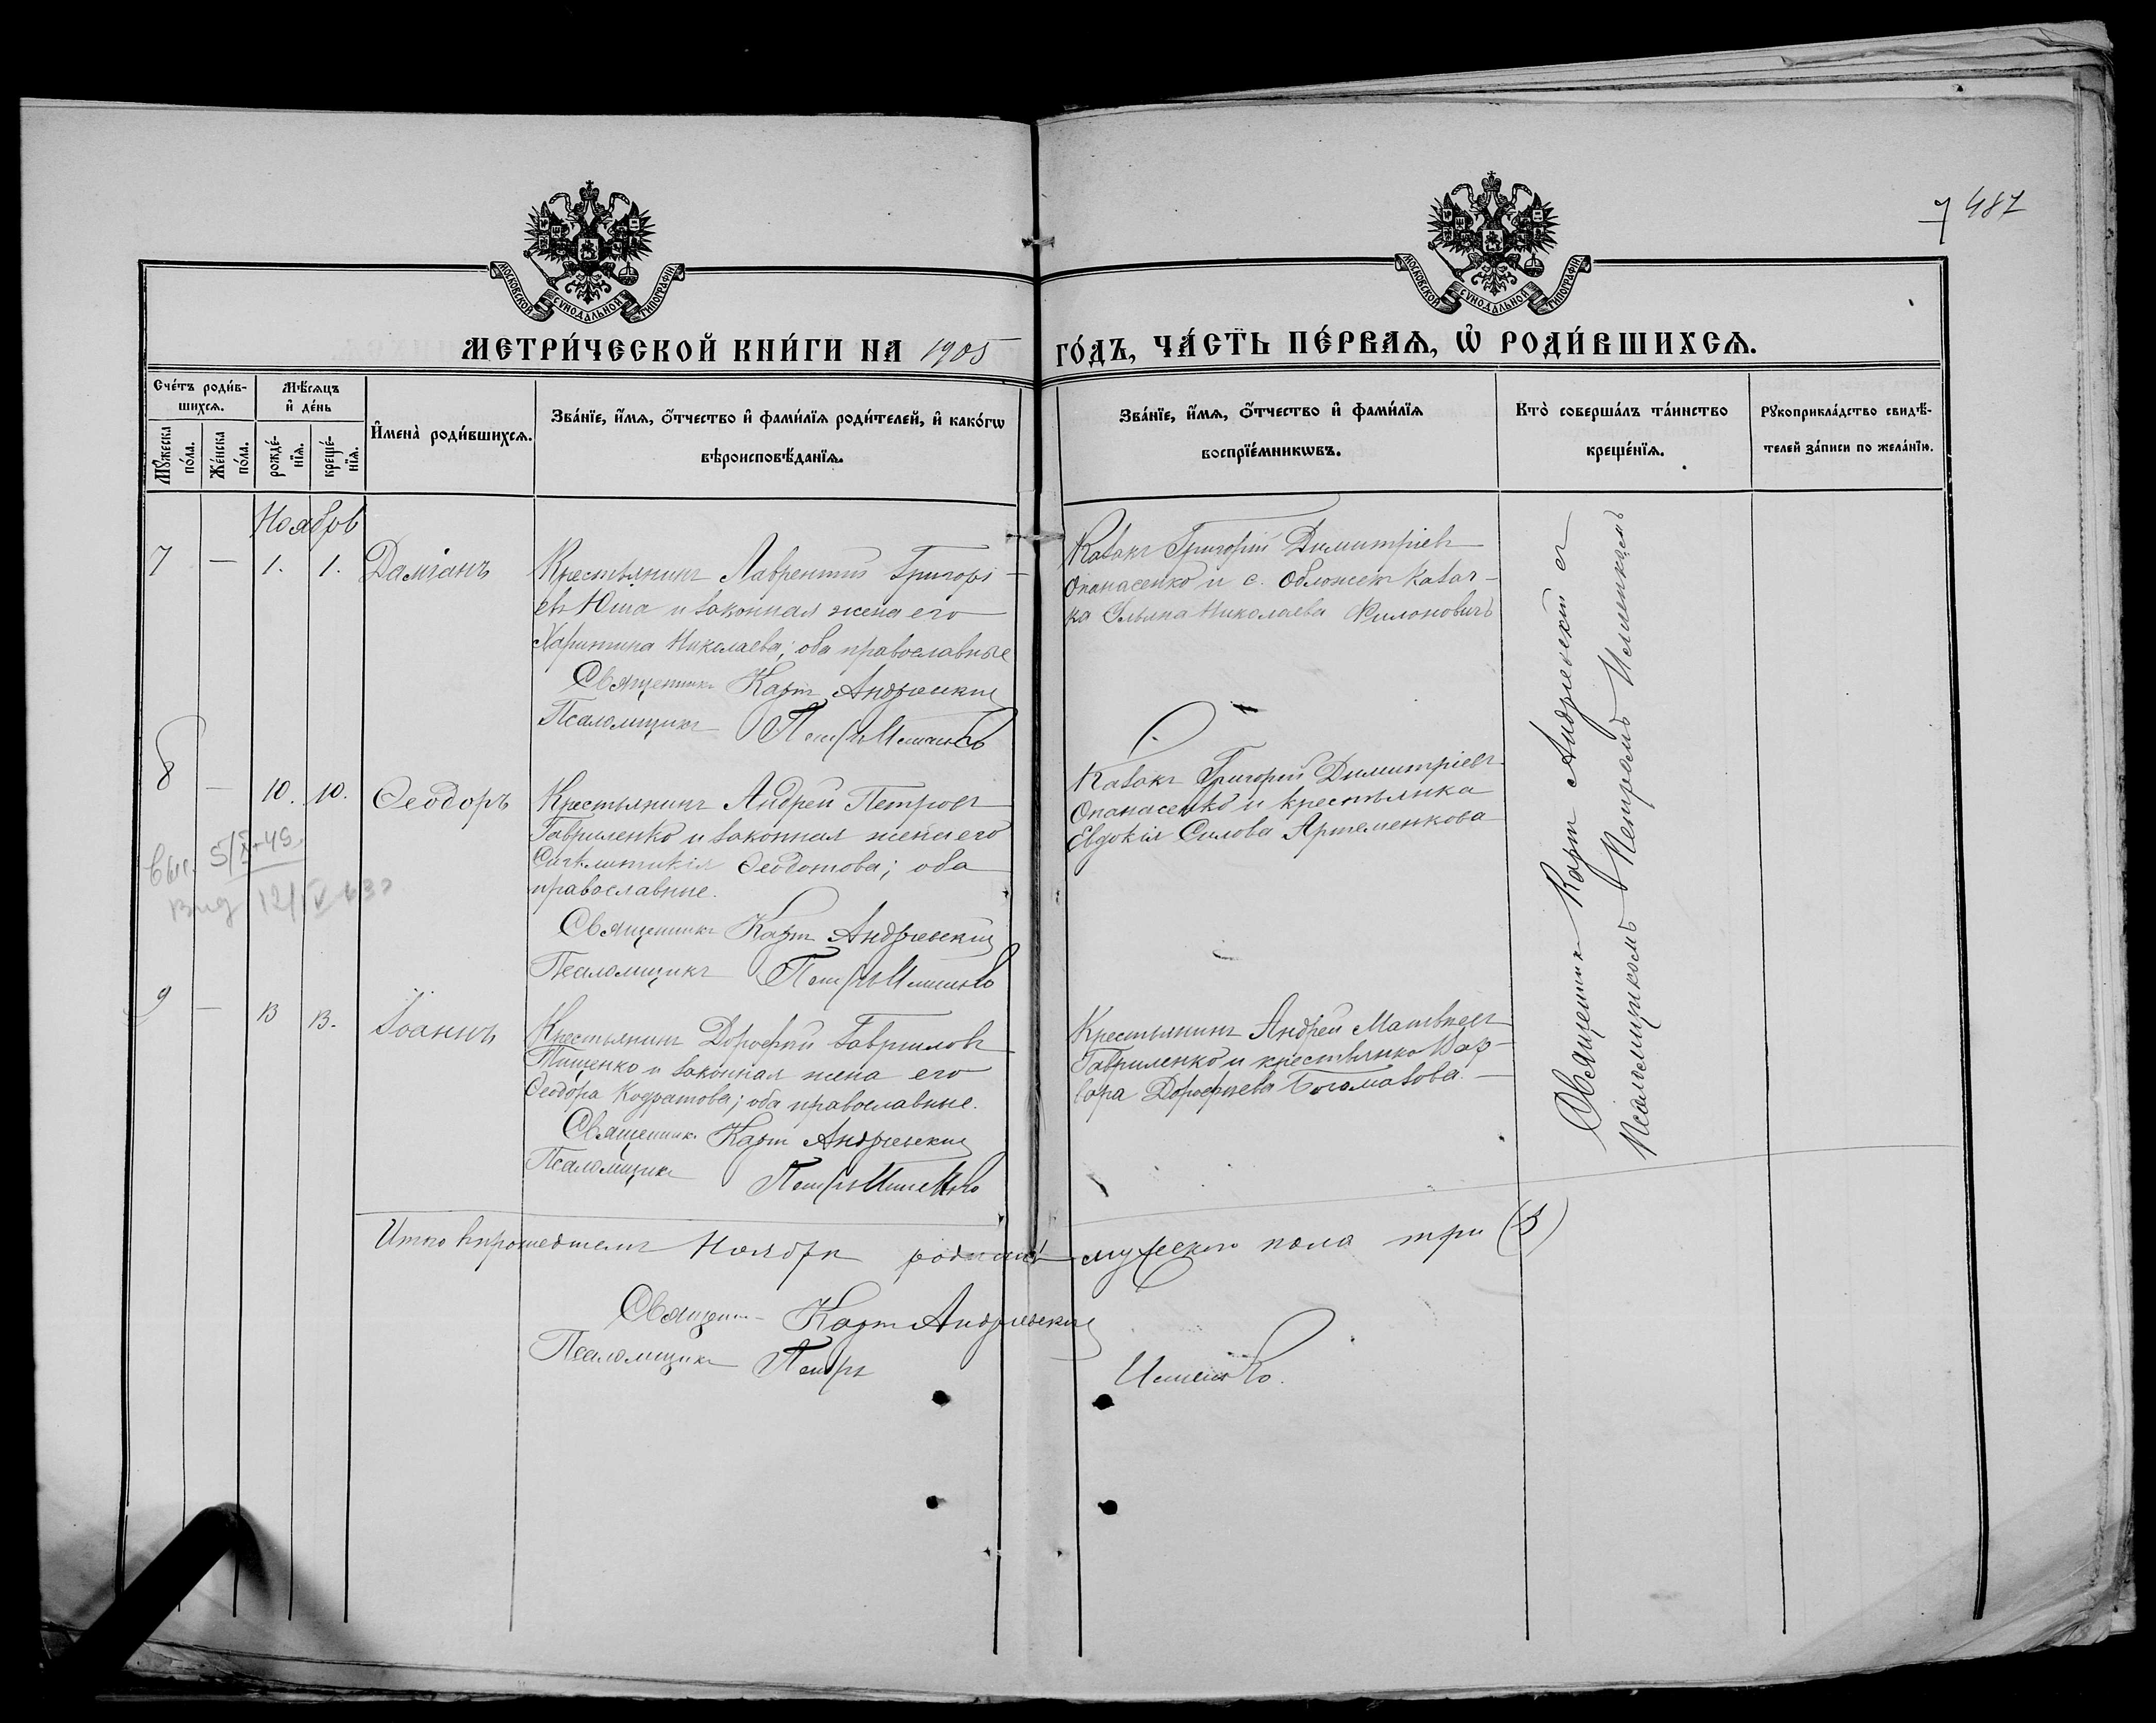 7 487
МОСКОВСКОЙ СУНОДАЛЬНОЙ ТИПОГРАФІИ
МОСКОВСКОЙ СУНОДАЛЬНОЙ ТИПОГРАФІИ
МЕТРИ́ЧЕСКОЙ КНИ́ГИ НА 1905 ГО́ДЪ, ЧА́СТЬ ПЕ́РВАѦ, Ѡ҆ РОДИ́ВШИХСѦ.
Сче́тъ роди́в-
шихсѧ.
Мꙋжеска по́ла.
Же́нска по́ла.
Мѣ́сѧцъ
и҆ де́нь
рожде́-
нїѧ.
креще́-
нїѧ.
И҆мена̀ роди́вшихсѧ.
Зва́нїе, и҆́мѧ, ѻ҆́тчество и҆ фами́лїѧ роди́телей, и҆ како́гѡ
вѣроисповѣ́данїѧ.
Зва́нїе, и҆́мѧ, ѻ҆́тчество и҆ фами́лїѧ
воспрїе́мникѡвъ.
Кто̀ соверша́лъ та́инство
креще́нїѧ.
Рꙋкоприкла́дство свидѣ́-
телей за́писи по жела́нїю.
Ноябрь
7 — 1. 1. Даміанъ
Крестьянинъ Лаврентій Григорі-
евъ Юша и законная жена его
Харитина Николаева; оба православные
Священникъ Карпъ Андріевскій
Псаломщикъ Петръ Ильченко
Козакъ Григорій Димитріевъ
Опанасенко и с. Обложекъ козач-
ка Ульяна Николаева Филоновичъ
8 — 10. 10. Ѳеодоръ
Крестьянинъ Андрей Петровъ
Гавриленко и законная жена его
Сигклитикія Ѳеодотова; оба
православные.
Священникъ Карпъ Андріевскій
Псаломщикъ Петръ
Козакъ Григорій Димитріевъ
Опанасенко и крестьянка
Евдокія Силова Артеменкова
5/X-49
12/IV
9 — 13 13. Іоаннъ
Крестьянинъ Дорофей Гавриловъ
Тищенко и законная жена его
Ѳеодора Кодратова; оба православные.
Священникъ Карпъ Андріевскій
Псаломщикъ Петръ
Крестьянинъ Андрей Матвѣевъ
Гавриленко и крестьянка Вар-
вара Дорофеева Богомазова.
Священникъ Карпъ Андріевскій съ
Псаломщикомъ Петромъ
Итого въ прошедшемъ Ноябрѣ родилось мужеского пола три (3)
Священ- Карпъ Андріевскій
Псаломщикъ Петръ